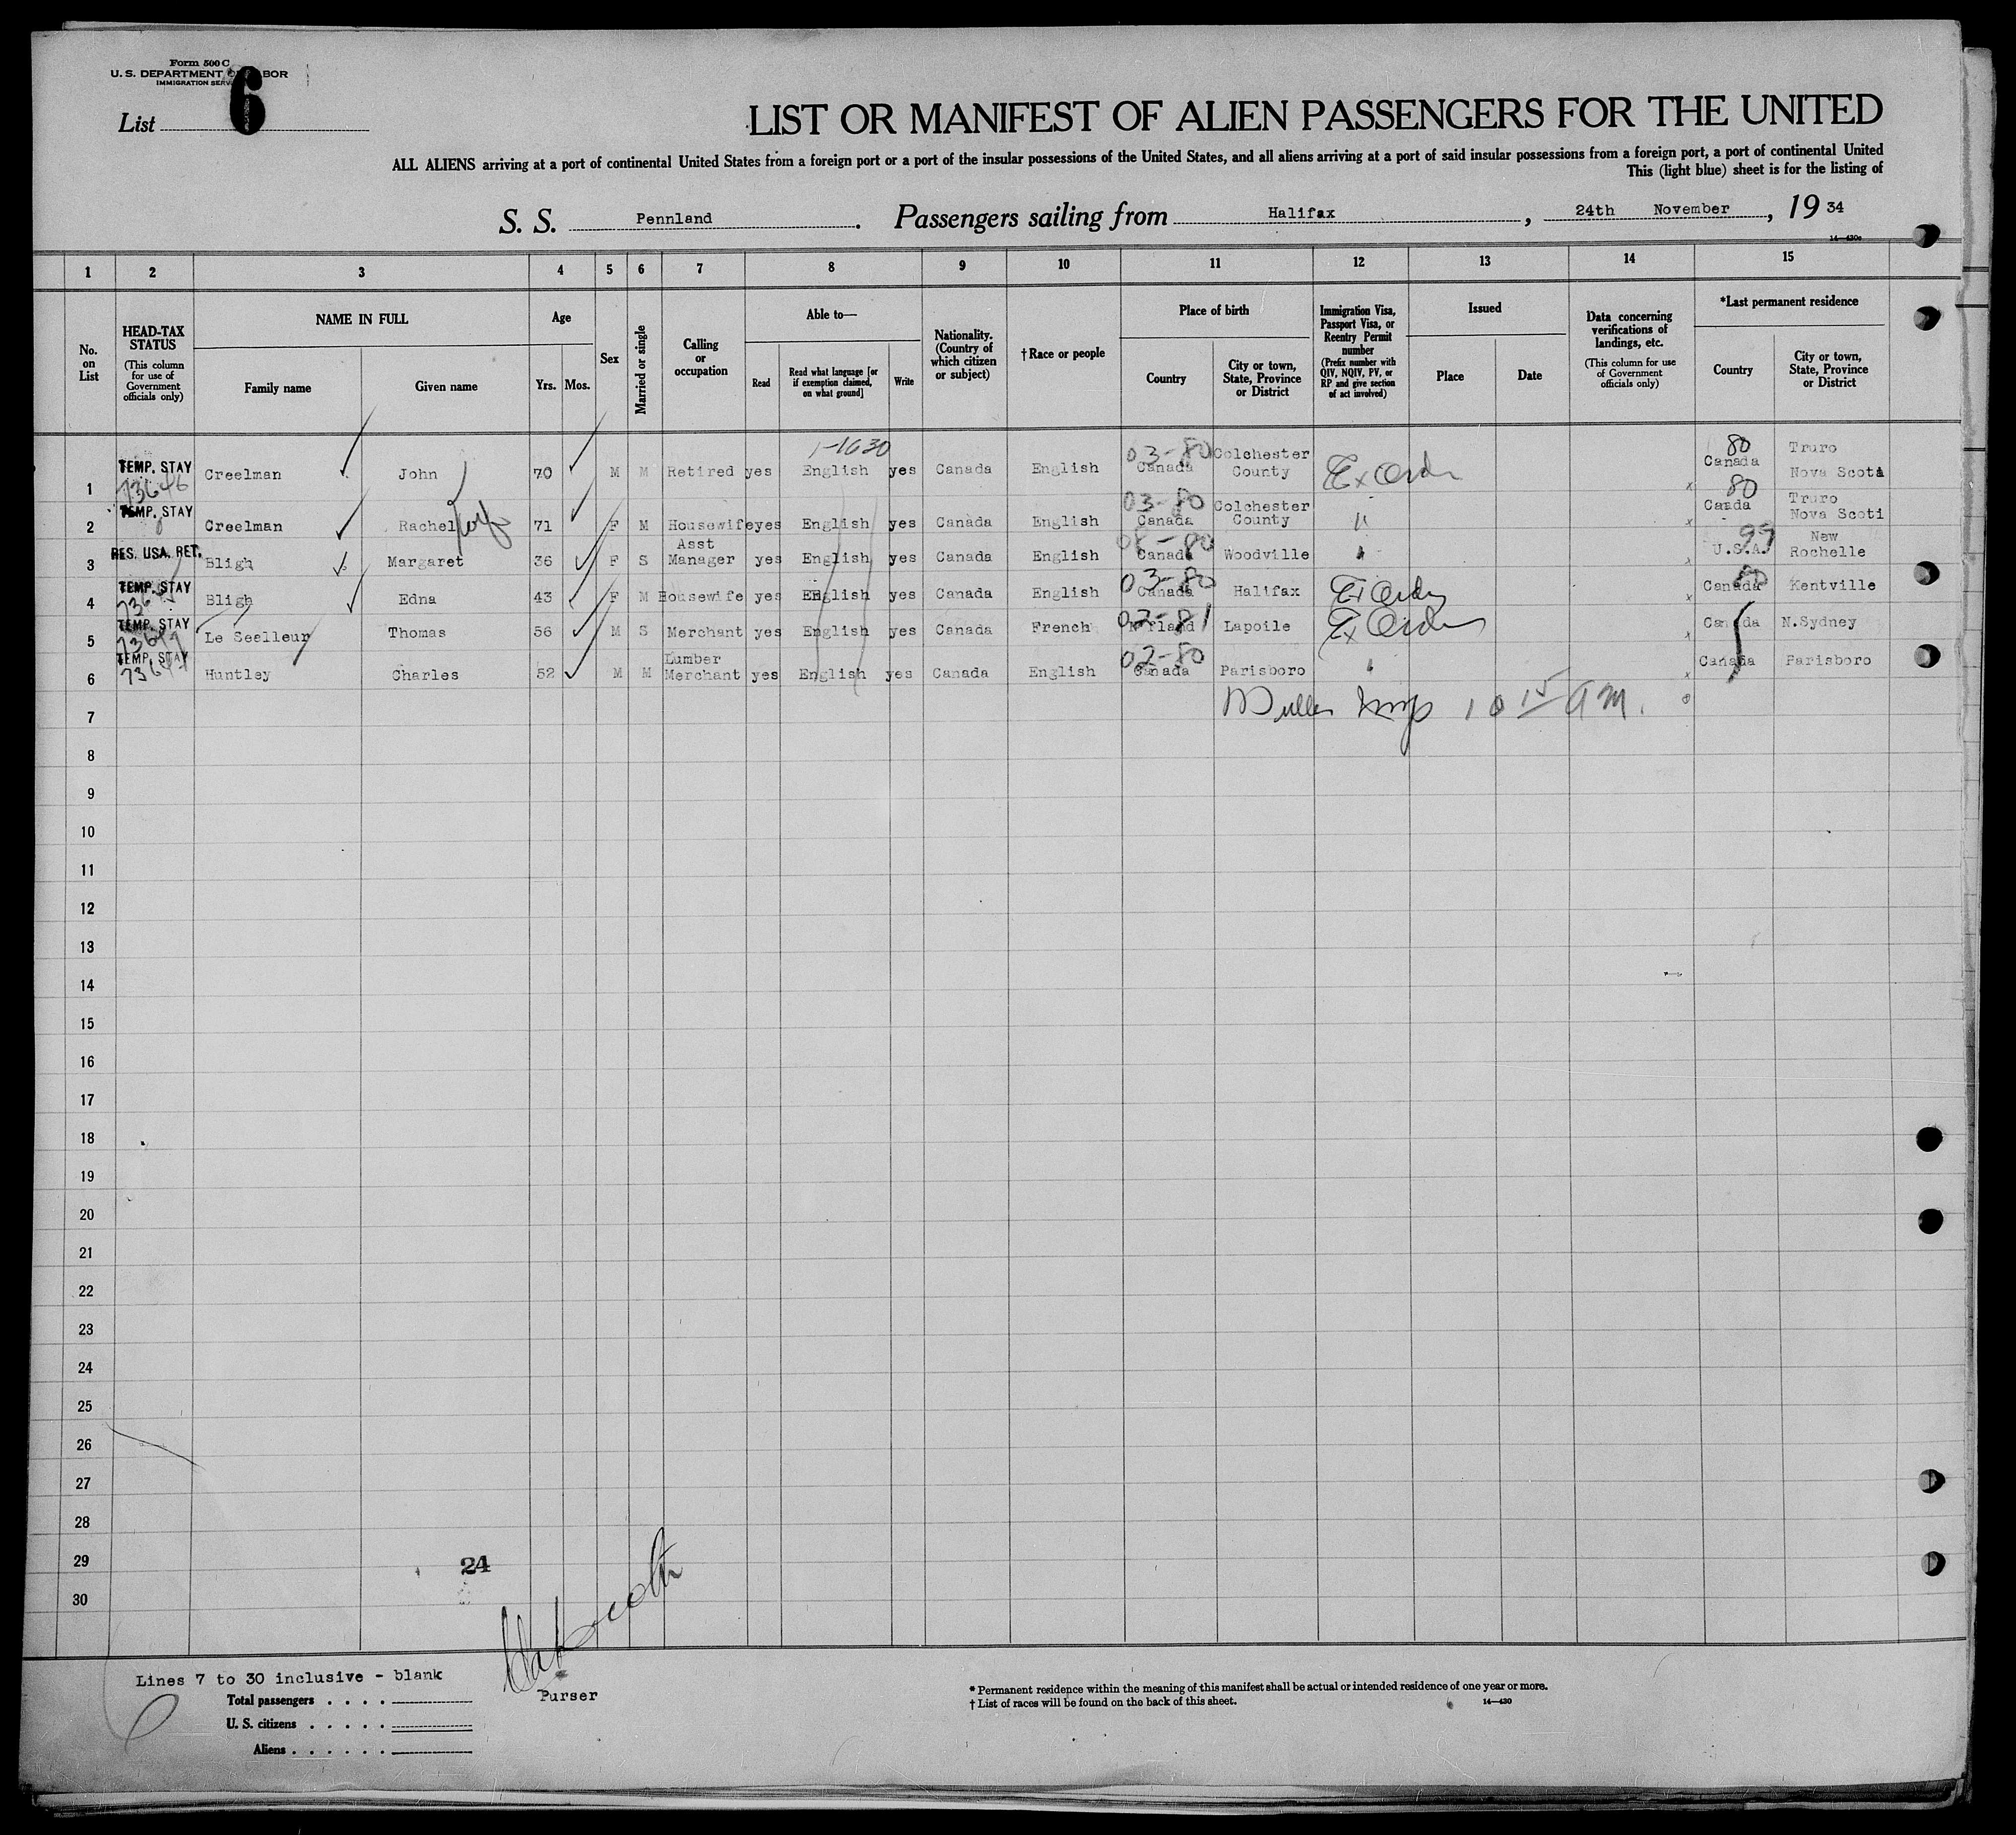 Form 500 C
U. S. DEPARTMENT OF LABOR
IMMIGRATION SERV
List 6
LIST OR MANIFEST OF ALIEN PASSENGERS FOR THE UNITED
ALL ALIENS arriving at a port of continental United States from a foreign port or a port of the insular possessions of the United States, and all aliens arriving at a port of said insular possessions from a foreign port, a port of continental United
This (light blue) sheet is for the listing of
S. S. Pennland. Passengers sailing from Halifax, 24th November, 19 34
14—430c
1 2 3 4 5 6 7 8 9 10 11 12 13 14 15
No. on List
HEAD-TAX STATUS (This column for use of Government officials only)
NAME IN FULL
Family name
Given name
Age
Yrs.
Mos.
Sex
Married or single
Calling or occupation
Able to—
Read
Read what language [or if exemption claimed, on what ground]
Write
Nationality. (Country of which citizen or subject)
† Race or people
Place of birth
Country
City or town, State, Province or District
Immigration Visa, Passport Visa, or Reentry Permit number (Prefix number with QIV, NQIV, PV, or RP and give section of act involved)
Issued
Place
Date
Data concerning verifications of landings, etc. (This column for use of Government officials only)
*Last permanent residence
Country
City or town, State, Province or District
1-1630
1 TEMP. STAY 73646 Creelman John 70 M M Retired yes English yes Canada English 03-80 Canada Colchester County Ex Order x 80 Canada Truro Nova Scotia
2 TEMP. STAY Creelman Rachel 71 F M Housewife yes English yes Canada English 03-80 Canada Colchester County " x 80 Canada Truro Nova Scoti
3 RES. USA. RET. Bligh Margaret 36 F S Asst Manager yes English yes Canada English Canada Woodville x 99 U.S.A. New Rochelle
4 TEMP. STAY Bligh Edna 43 F M Housewife yes English yes Canada English 03-80 Canada Halifax Ex Order x 80 Canada Kentville
5 TEMP. STAY Le Seelleur Thomas 56 M S Merchant yes English yes Canada French 02-81 N'fland Lapoile Ex Order x Canada N.Sydney
6 TEMP. STAY Huntley Charles 52 M M Lumber Merchant yes English yes Canada English 02-80 Canada Parisboro x Canada Parisboro
7 10 15 AM.
8
9
10
11
12
13
14
15
16
17
18
19
20
21
22
23
24
25
26
27
28
29 24
30
Lines 7 to 30 inclusive - blank
Purser
Total passengers . . . .
U. S. citizens . . . . .
Aliens . . . . . .
* Permanent residence within the meaning of this manifest shall be actual or intended residence of one year or more.
† List of races will be found on the back of this sheet.
14—430